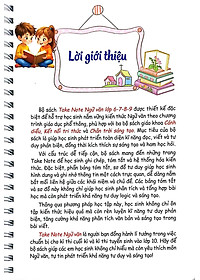 Lời giới thiệu
Bộ sách Take Note Ngữ văn lớp 6-7-8-9 được thiết kế đặc
biệt để hỗ trợ học sinh nắm vững kiến thức Ngữ văn theo chương
trình giáo dục phổ thông, phù hợp với ba bộ sách giáo khoa Cánh
diều, Kết nối tri thức và Chân trời sáng tạo. Mục tiêu của bộ
sách là giúp học sinh phát triển toàn diện kĩ năng đọc, viết và tư
duy phản biện, đồng thời kích thích sự sáng tạo và ham học hỏi.
Với cấu trúc dễ tiếp cận, bộ sách mang đến những trang
Take Note để học sinh ghi chép, tóm tắt và hệ thống hóa kiến
thức. Đặc biệt, phần bảng tóm tắt, sơ đồ tư duy giúp học sinh
hình dung và ghi nhớ thông tin một cách trực quan, dễ dàng nắm
bắt mối liên hệ giữa các khái niệm và chủ đề. Các bảng tóm tắt
và sơ đồ này không chỉ giúp học sinh phân tích và tổng hợp bài
học mà còn phát triển khả năng tư duy logic và sáng tạo.
Thông qua phương pháp học tập này, học sinh không chỉ ôn
tập kiến thức hiệu quả mà còn rèn luyện kĩ năng tự duy phản
biện, tăng cường khả năng phân tích văn bản và sáng tạo trong
bài viết.
Take Note Ngữ văn là người bạn đồng hành lí tưởng trong việc
chuẩn bị cho kì thi cuối kì và kì thi tuyển sinh vào lớp 10. Hãy để
bộ sách giúp các em học sinh không chỉ hiểu mà còn yêu thích môn
Ngữ văn, tự tin phát triển khả năng tư duy và sáng tạo!